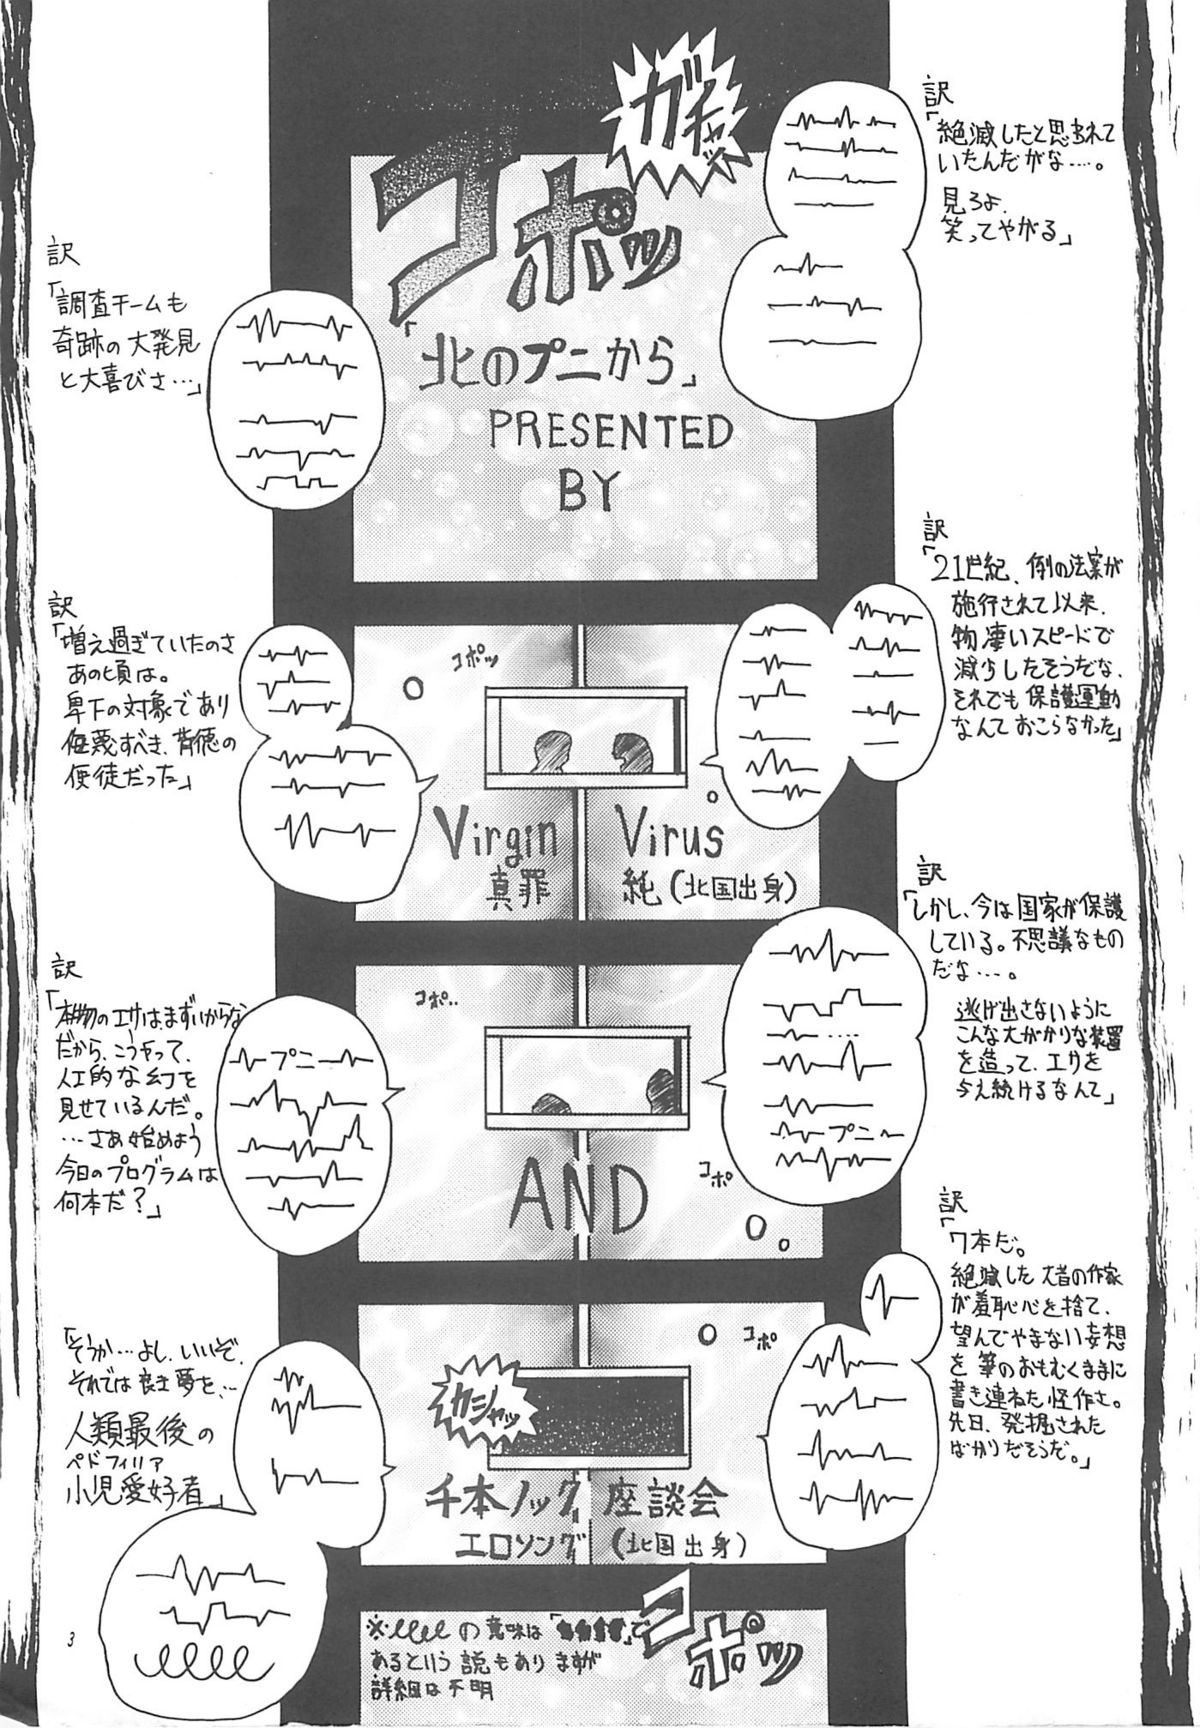 ガチャッ
コポッ
「北のプニから」
PRESENTED
BY
訳
「絶滅したと思われて
いたんだがな‥‥。
見ろよ、
笑ってやがる」
訳
「調査チームも
奇跡の大発見
と大喜びさ…」
訳
「21世紀、例の法案が
施行されて以来、
物凄いスピードで
減少したそうだな、
それでも保護運動
なんておこらなかった」
訳
「増え過ぎていたのさ
あの頃は。
卑下の対象であり
侮蔑すべき、背徳の
使徒だった」
コポッ
Virgin Virus
真罪 純(北国出身)
訳
「しかし、今は国家が保護
している。不思議なもの
だな‥‥。
逃げ出さないように
こんな大がかりな装置
を造って、エサを
与え続けるなんて」
プニ
訳
「本物のエサはまずいからな
だから、こうやって、
人工的な幻を
見せているんだ。
…さあ始めよう
今日のプログラムは
何本だ?」
プニ
コポ‥
コポ
AND
訳
「7本だ。
絶滅した大昔の作家
が羞恥心を捨て、
望んでやまない妄想
を筆のおもむくままに
書き連ねた怪作さ。
先日、発掘された
ばかりだそうだ。」
「そうか…よし、いいぞ、
それでは良き夢を、‥
人類最後の
ペドフィリア
小児愛好者」
コポ
カシャッ
千本ノック座談会
エロソング(北国出身)
コポッ
※ の意味は「 」で
あるという説もありますが
詳細は不明
3